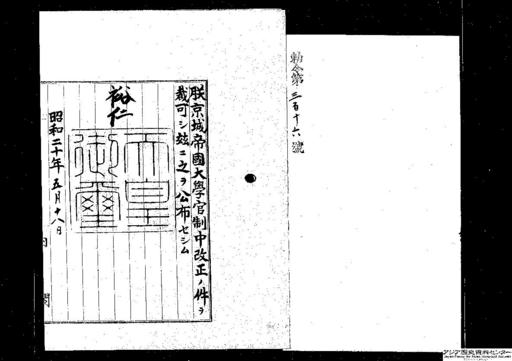 勅令第三百十六號
朕京城帝國大學官制中改正ノ件ヲ
裁可シ茲ニ之ヲ公布セシム
裕仁
天皇
御璽
昭和二十年五月十八日
内閣
アジア歴史資料センター